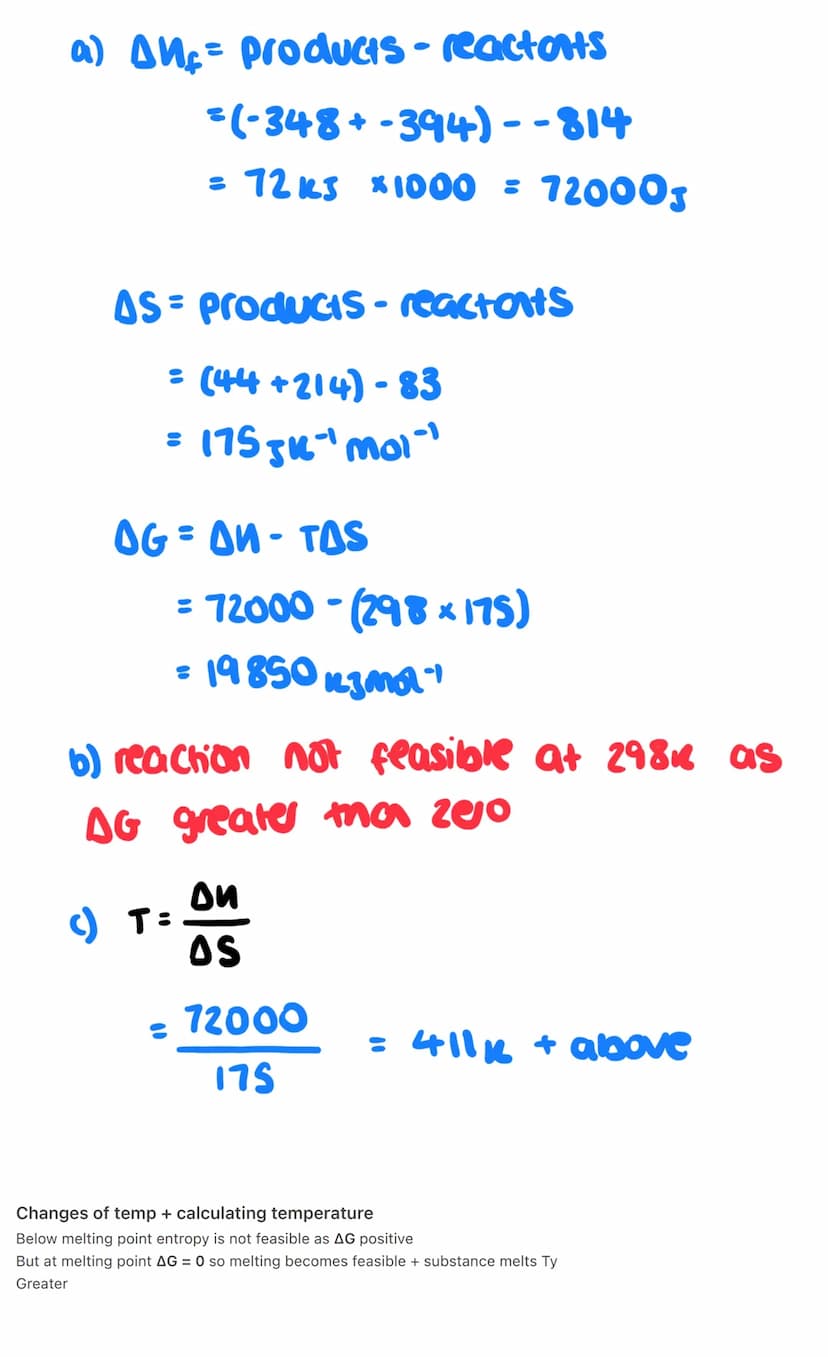 a) ΔHf = products - reactants
= (-348 + -394) - -814
= 72 kJ ×1000 = 72000J
ΔS = products - reactants
= (44 + 214) - 83
= 175 JK⁻¹ mol⁻¹
ΔG = ΔH - TΔS
= 72000 - (298 × 175)
= 19850 kJmol⁻¹
b) reaction not feasible at 298K as
ΔG greater than zero
c) T = ΔH
ΔS
= 72000
175
= 411K + above
Changes of temp + calculating temperature
Below melting point entropy is not feasible as ΔG positive
But at melting point ΔG = 0 so melting becomes feasible + substance melts Ty
Greater